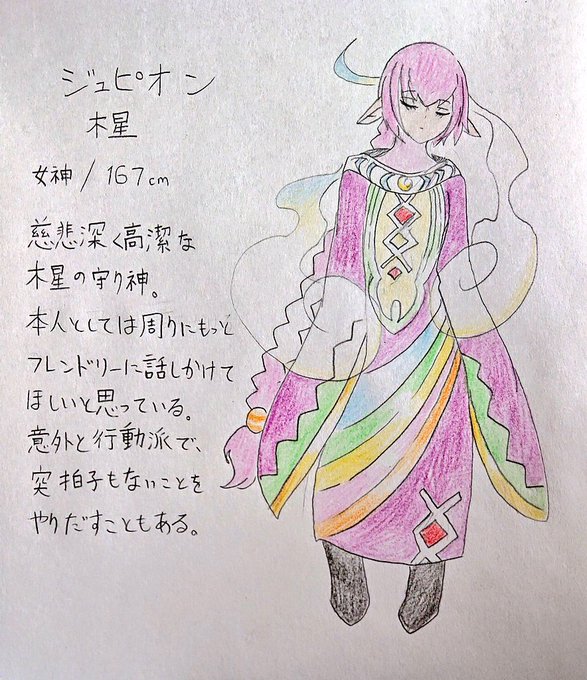 ジュピオン
木星
女神/167cm
慈悲深く高潔な
木星の守り神。
本人としては周りにもっと
フレンドリーに話しかけて
ほしいと思っている。
意外と行動派で、
突拍子もないことを
やりだすこともある。